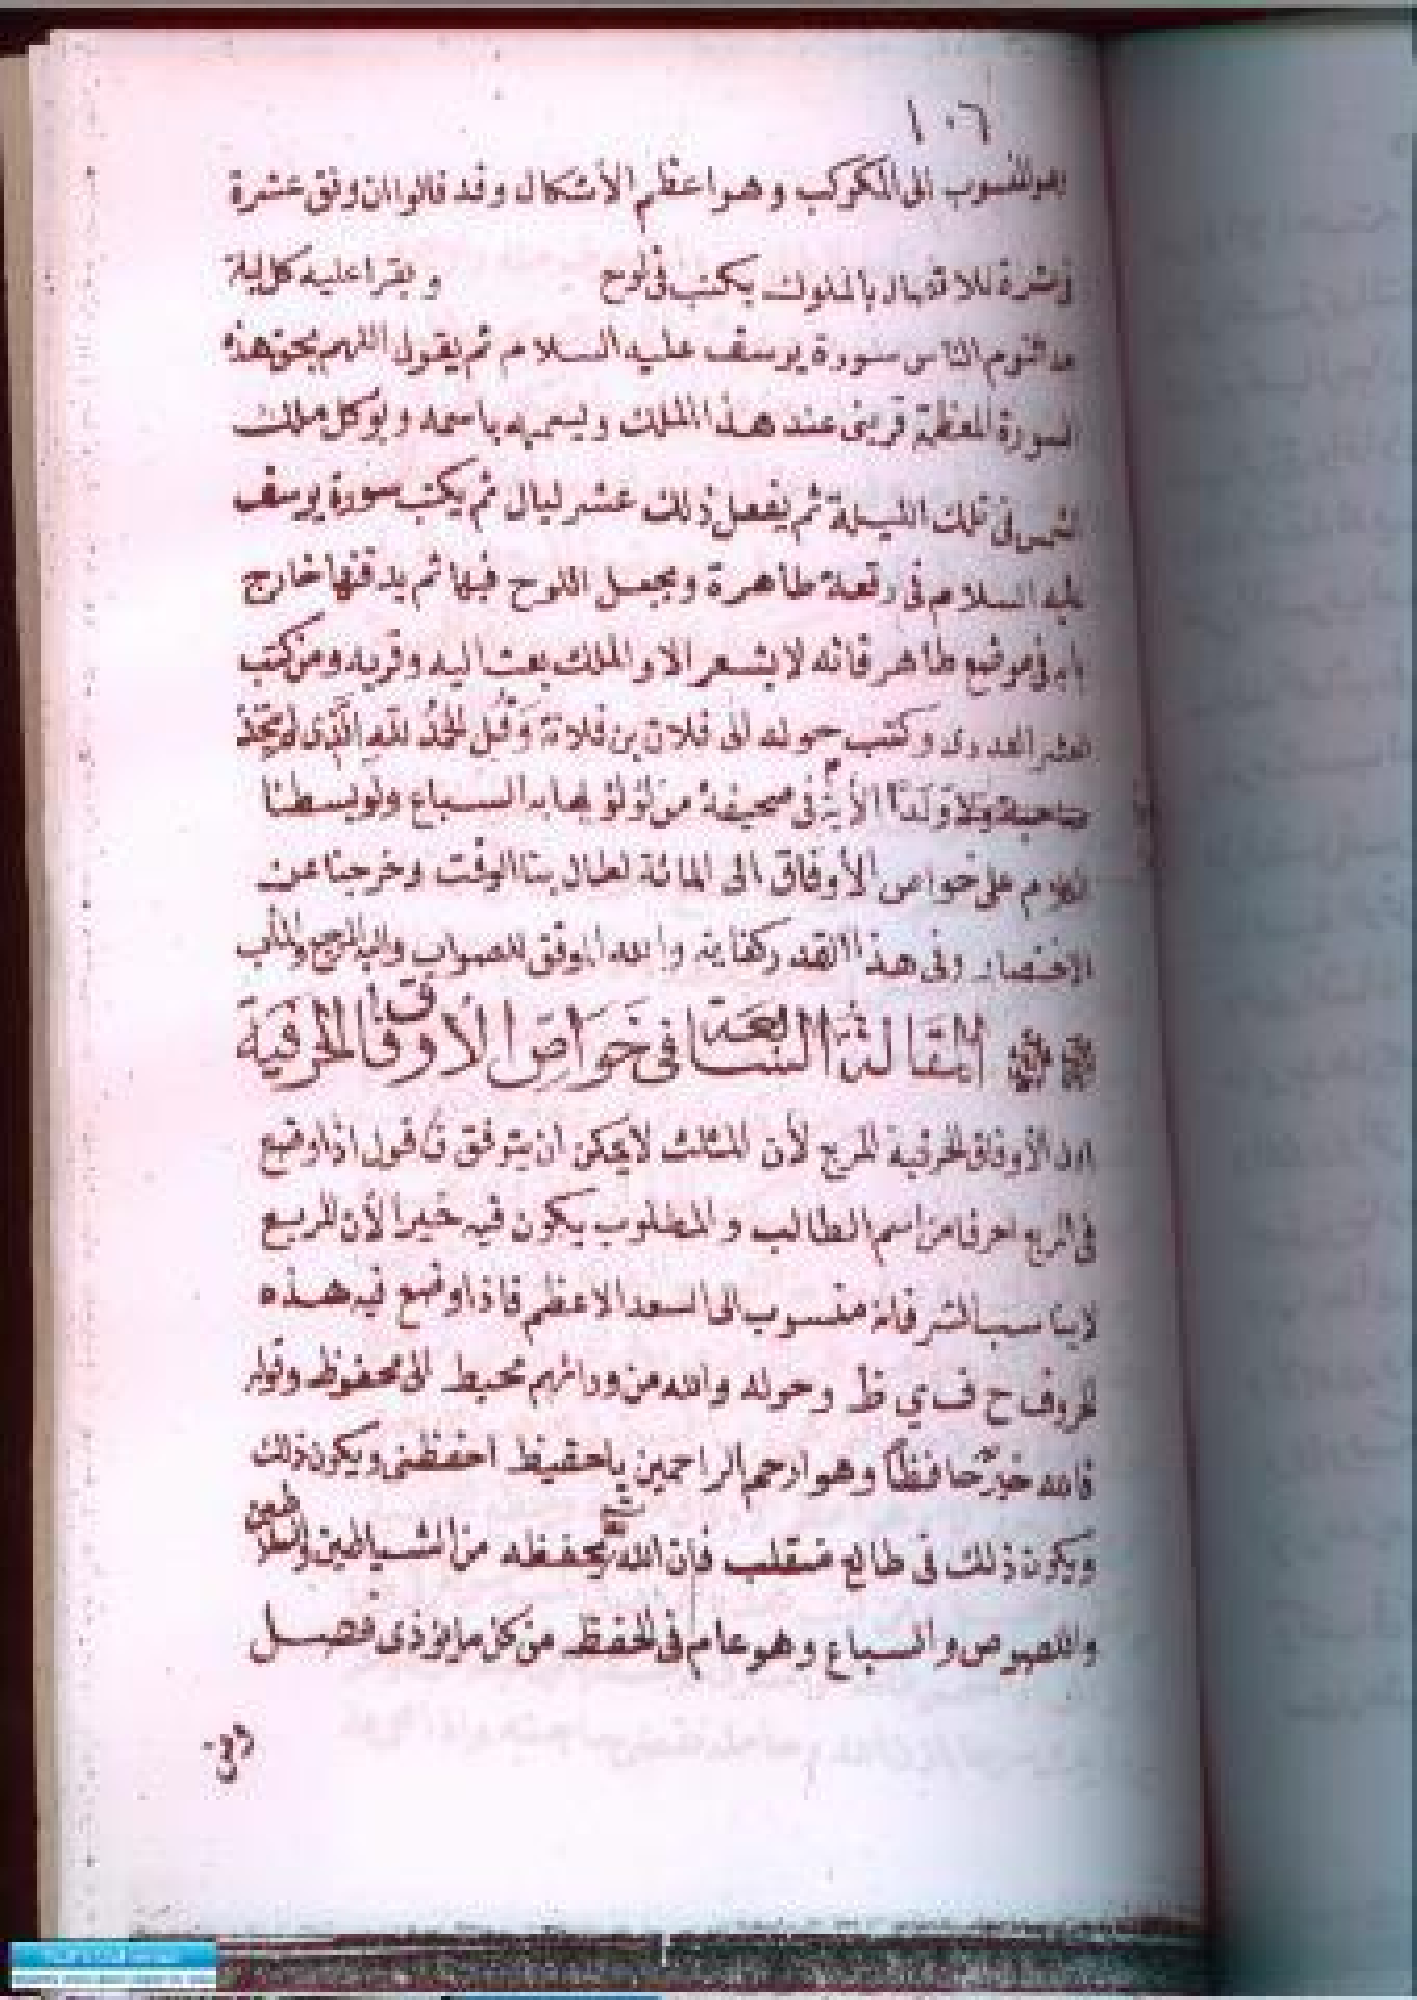 ١٠٦
المنسوب الى الكوكب وهو اعظم الأشكال وقد قالوا ان وفق عشرة
فى عشرة للاقبال بالملوك يكتب فى لوح ويقرا عليه كل ليلة
عند نوم الناس سورة يوسف عليه السلام ثم يقول اللهم بحق هذه
السورة العظيمة قربنى عند هذا الملك ويسميه باسمه ويوكل ملك
الشمس فى تلك الليلة ثم يفعل ذلك عشر ليال ثم يكتب سورة يوسف
عليه السلام فى رقعة طاهرة ويجعل اللوح فيها ثم يدفنها خارج
بابه فى موضع طاهر فانه لا يشعر الا والملك بعث اليه وقربه ومن كتب
العشر العددى وكتب حوله الى فلان بن فلانة وَقُل الحمدُ للّه الَّذى لم يتخذ
صاحبة ولا وَلَدًا الأية فى صحيفة من لؤلؤ يهابه السباع ولو بسطنا
الكلام على خواص الأوفاق الى المائة لطال بنا الوقت وخرجنا عن
الاختصار وفى هذا القدر كفاية والله الموفق للصواب واليه المرجع والمأب
المقالة السابعة فى خواص الأوفاق الحرفية
اول الأوفاق الحرفية المربع لأن المثلث لا يمكن ان يتوفق فأقول اذا وضع
فى المربع احرفا من اسم الطالب والمطلوب يكون فيه خيرا لأن المربع
لا يناسب الشر فانه منسوب الى السعد الاعظم فاذا وضع فيه هذه
الحروف ح ف ي ظ وحوله والله من ورائهم محيط الى محفوظ وقوله
فالله خيرٌ حافظاً وهو ارحم الراحمين يا حفيظ احفظنى ويكون ذلك
ويكون ذلك فى طالع منقلب فإن الله يحفظه من الشياطين
واللصوص والسباع وهو عام فى الحفظ من كل ما يؤذى فصل
وفى